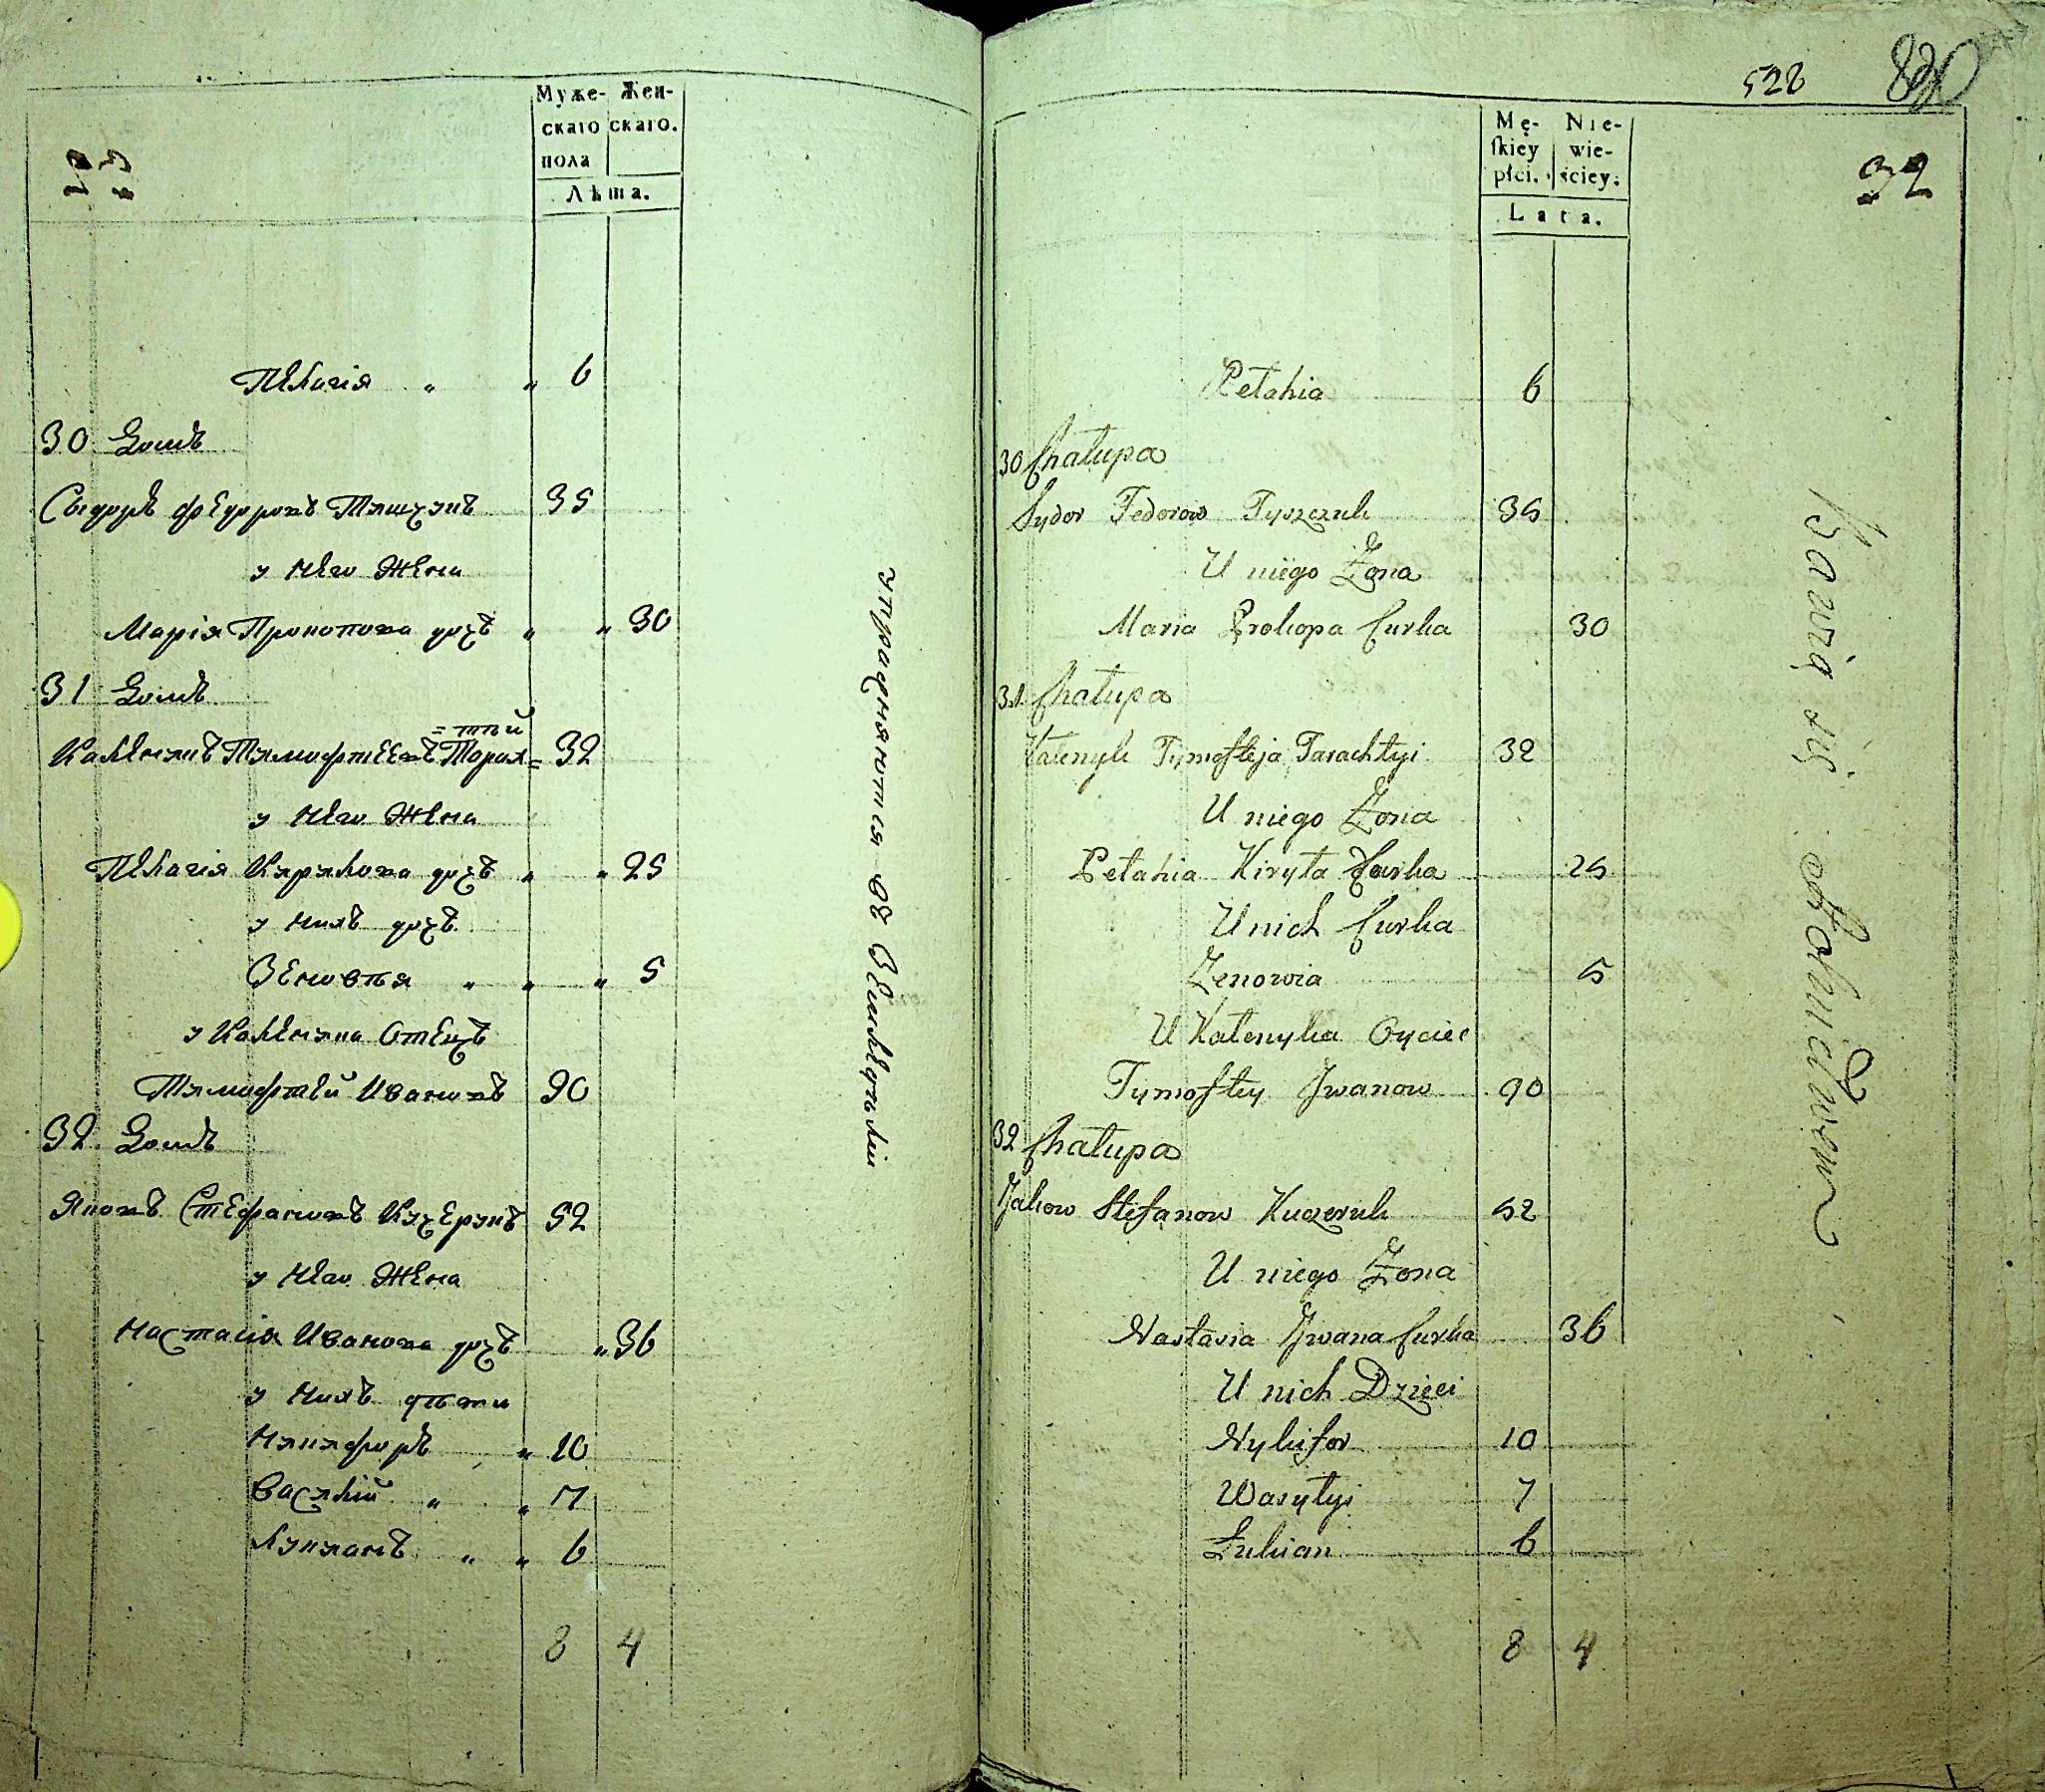 Муже- Жен-
скаго скаго.
пола
Лѣта.
Пелагія " " 6
30 Домъ
Сыдоръ Федоровъ Тышчукъ 35
у Него Жена
Марія Прокопова дочъ " " 30
31 Домъ
=тѣй
Каленикъ Тымофтеевъ Торах= 32
у Него Жена
Пелагія Кирилова дочъ " " 25
у Нихъ дочъ
Зеновѣя " " " 5
у Каленика Отецъ
Тимофтей Ивановъ 90
32 Домъ
Яковъ Стефановъ Кучерукъ 52
у Него Жена
Настасія Иванова дочъ " 36
у Нихъ дѣти
Никифоръ " 10
Василій " " 7
Лукианъ " " 6
8 4
упражняются въ Земледѣліи
528
32
Mę- Nie-
skiey wie-
płci. ściey.
Lata.
Pelahia 6
30 Chałupa
Sydor Fedorow Tyszczuk 35
U niego Żona
Maria Prokopa Curka 30
31 Chałupa
Kalenyk Tymofteja Tarachtyi 32
U niego Żona
Pelahia Kiryła Curka 25
U nich Curka
Zenowia 5
U Kalenyka Oyciec
Tymoftey Jwanow 90
32 Chałupa
Jakow Stefanow Kuczeruk 52
U niego Żona
Nastasia Jwana Curka 36
U nich Dzieci
Nykifor 10
Wasylyi 7
Łukian 6
8 4
Bawią się Rolnictwem